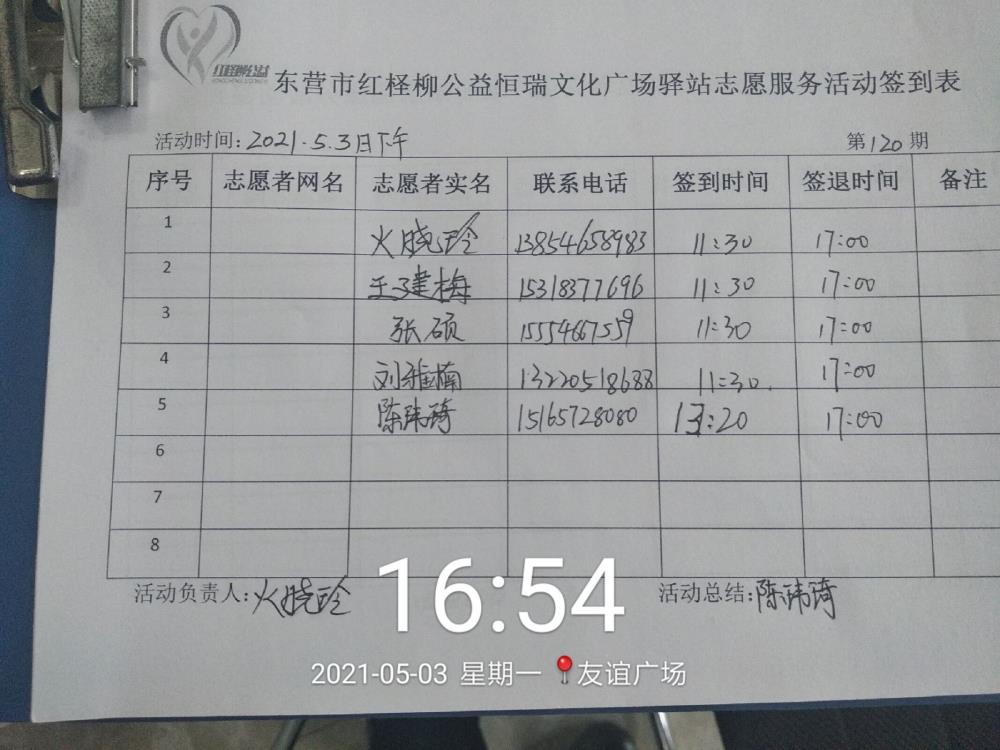 红柽柳公益
东营市红柽柳公益恒瑞文化广场驿站志愿服务活动签到表
活动时间:2021.5.3日下午 第120期
序号 志愿者网名 志愿者实名 联系电话 签到时间 签退时间 备注
1 火晓玲 13854658983 11:30 17:00
2 王建梅 15318377696 11:30 17:00
3 张硕 15554667559 11:30 17:00
4 刘雅楠 13220518688 11:30 17:00
5 陈玮琦 15165728080 13:20 17:00
6
7
8
活动负责人:火晓玲 活动总结:陈玮琦
16:54
2021-05-03 星期一 友谊广场